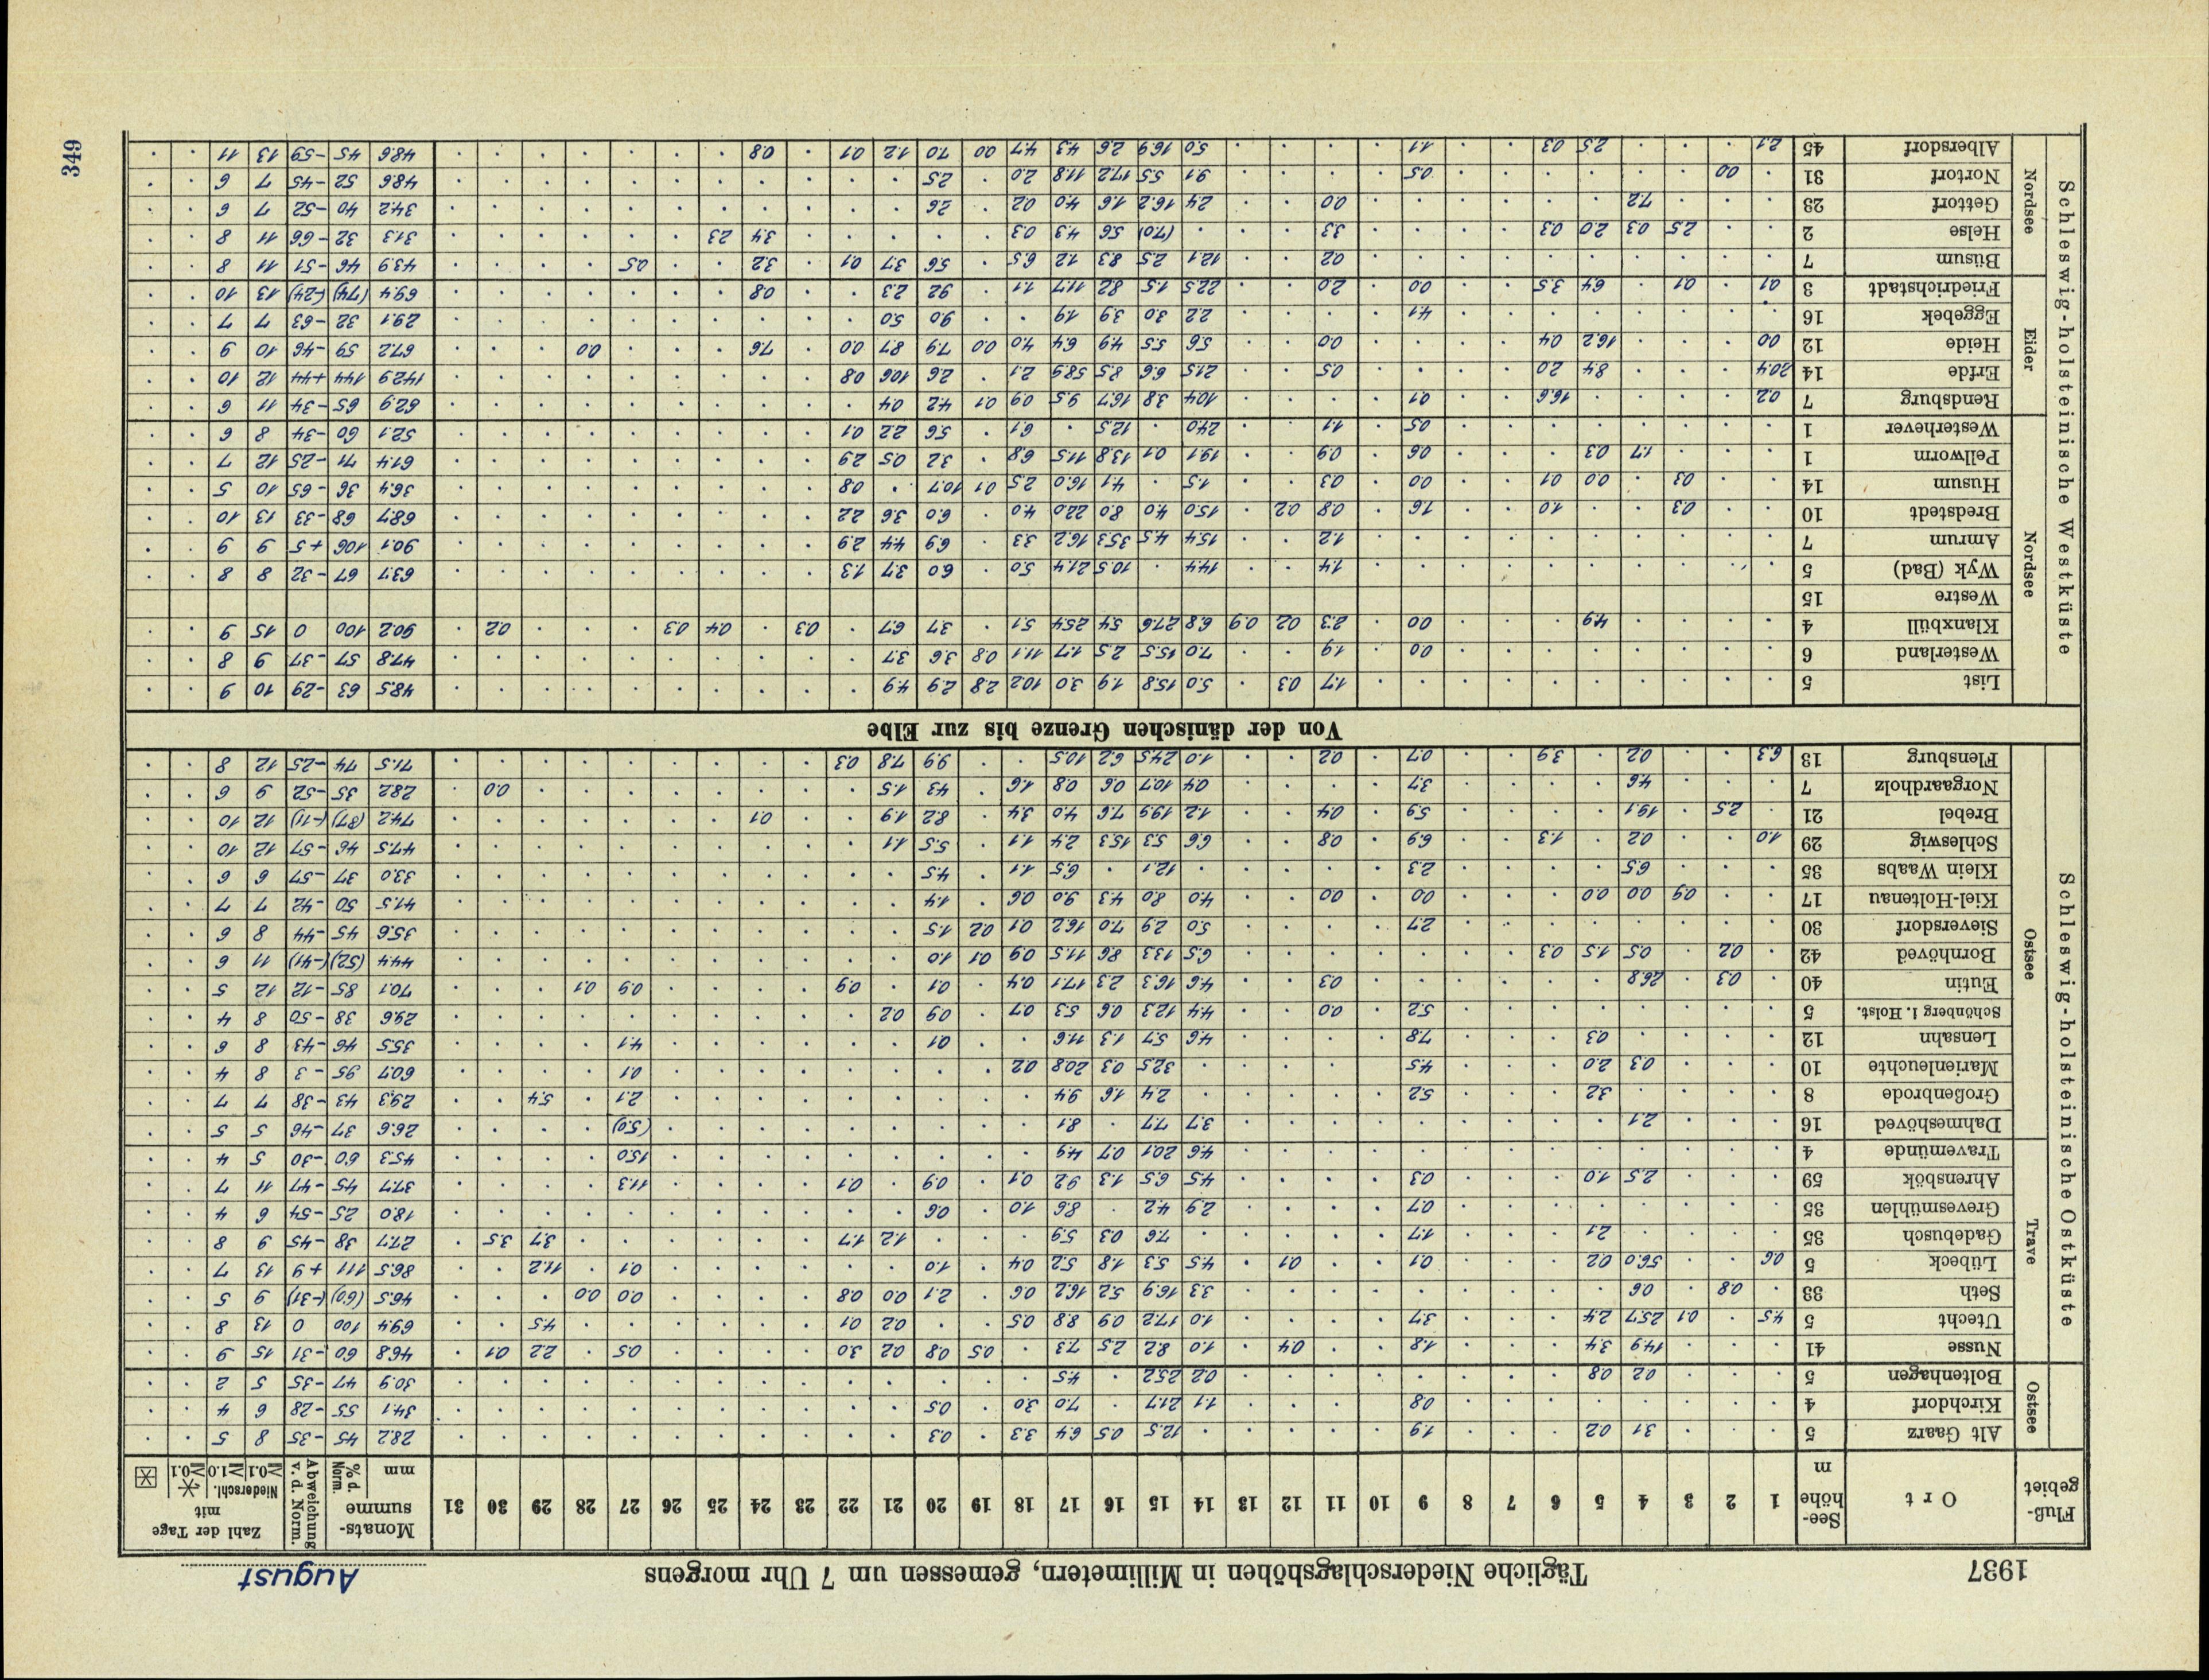 1937 Tägliche Niederschlagshöhen in Millimetern, gemessen um 7 Uhr morgens August
Fluß-gebiet Ort See-höhe m 1 2 3 4 5 6 7 8 9 10 11 12 13 14 15 16 17 18 19 20 21 22 23 24 25 26 27 28 29 30 31 Monats-summe mm % d. Norm. Abweichung v. d. Norm. Zahl der Tage mit Niederschl. ≥0.1 ≥1.0 ≥0.1
Schleswig-holsteinische Ostküste
Ostsee
Alt Gaarz 5 3.1 0.2 1.9 12.5 0.5 6.4 3.3 0.3 28.2 45 -35 8 5
Kirchdorf 4 0.8 1.1 21.7 7.0 3.0 0.5 34.1 55 -28 6 4
Boltenhagen 5 0.2 0.8 0.2 25.2 4.5 30.9 47 -35 5 2
Trave
Nusse 41 14.9 3.4 1.8 0.4 1.0 8.2 2.5 7.3 0.5 0.8 0.2 3.0 0.5 2.2 0.1 46.8 60 -31 15 9
Utecht 5 4.5 0.1 25.7 2.4 3.7 1.0 17.2 0.9 8.8 0.5 0.2 0.1 4.5 69.4 100 0 13 8
Seth 33 0.8 0.6 3.3 16.9 5.2 16.2 0.6 2.1 0.0 0.8 0.0 0.0 46.5 (60) (-31) 9 5
Lübeck 5 0.6 56.0 0.2 0.1 0.1 4.5 5.3 1.8 5.2 0.4 1.0 0.1 11.2 86.5 111 +9 13 7
Gadebusch 35 2.1 1.7 7.6 0.3 5.9 1.2 1.7 3.7 3.5 27.7 38 -45 9 8
Grevesmühlen 35 0.7 2.9 4.2 8.6 1.0 0.6 18.0 25 -54 6 4
Ahrensbök 59 2.5 1.0 0.3 4.5 6.5 1.3 9.2 0.1 0.9 0.1 11.3 37.7 45 -47 11 7
Travemünde 4 4.6 20.1 0.7 4.9 15.0 45.3 60 -30 5 4
Ostsee
Dahmeshöved 16 2.1 3.7 7.7 8.1 (5.0) 26.6 37 -46 5 5
Großenbrode 8 3.2 5.2 2.4 1.6 9.4 2.1 5.4 29.3 43 -38 7 7
Marienleuchte 10 0.3 2.0 4.5 32.5 0.3 20.8 0.2 0.1 60.7 95 -3 8 4
Lensahn 12 0.3 7.8 4.6 5.7 1.3 11.6 0.1 4.1 35.5 46 -43 8 6
Schönberg i. Holst. 5 5.2 0.0 4.4 12.3 0.6 5.3 0.7 0.9 0.2 29.6 38 -50 8 4
Eutin 40 0.3 26.8 0.3 4.6 16.3 2.3 17.1 0.4 0.1 0.9 0.9 0.1 70.1 85 -12 12 5
Bornhöved 42 0.2 0.5 1.5 0.3 6.5 13.3 8.6 11.5 0.9 0.1 1.0 44.4 (52) (-41) 11 6
Sieversdorf 30 2.7 5.0 2.9 7.0 16.2 0.1 0.2 1.5 35.6 45 -44 8 6
Kiel-Holtenau 17 0.9 0.0 0.0 0.0 0.0 4.0 8.0 4.3 9.0 0.6 1.4 41.5 50 -42 7 7
Klein Waabs 35 6.5 2.3 12.1 6.5 1.1 4.5 33.0 37 -57 6 6
Schleswig 29 1.0 0.2 1.3 6.9 0.8 6.6 5.3 15.3 2.4 1.1 5.5 1.1 47.5 46 -57 12 10
Brebel 21 2.5 19.1 5.9 0.4 1.2 19.9 7.6 4.0 3.4 8.2 1.9 0.1 74.2 (87) (-11) 12 10
Norgaardholz 7 4.6 3.7 0.4 10.7 0.6 0.8 1.6 4.3 1.5 0.0 28.2 35 -52 9 6
Flensburg 13 6.3 0.2 3.9 0.7 0.2 1.0 24.5 6.2 10.5 9.9 7.8 0.3 71.5 74 -25 12 8
Von der dänischen Grenze bis zur Elbe
Schleswig-holsteinische Westküste
Nordsee
List 5 1.7 0.3 5.0 15.8 1.9 3.0 10.2 2.8 2.9 4.9 48.5 63 -29 10 9
Westerland 6 0.0 1.9 7.0 15.5 2.5 1.7 11.1 0.8 3.6 3.7 47.8 57 -37 9 8
Klanxbüll 4 4.9 0.0 2.3 0.2 0.9 6.8 27.6 5.4 25.4 5.1 3.7 6.7 0.3 0.4 0.3 0.2 90.2 100 0 15 9
Westre 15
Wyk (Bad) 5 1.4 14.4 10.5 21.4 5.0 6.0 3.7 1.3 63.7 67 -32 8 8
Amrum 7 1.2 15.4 4.5 35.3 16.2 3.3 6.9 4.4 2.9 90.1 106 +5 9 9
Bredstedt 10 0.3 1.0 1.6 0.8 0.2 15.0 4.0 8.0 22.0 4.0 6.0 3.6 2.2 68.7 68 -33 13 10
Husum 14 0.3 0.0 0.1 0.0 0.3 1.5 4.1 16.0 2.5 0.1 10.7 0.8 36.4 36 -65 10 5
Pellworm 1 1.7 0.3 0.6 0.9 19.1 0.1 13.8 11.5 6.8 3.2 0.5 2.9 61.4 71 -25 12 7
Westerhever 1 0.5 1.1 24.0 12.5 6.1 5.6 2.2 0.1 52.1 60 -34 8 6
Eider
Rendsburg 7 0.2 16.6 0.1 10.4 3.8 16.7 9.5 0.9 0.1 4.2 0.4 62.9 65 -34 11 6
Erfde 14 20.4 8.4 2.0 0.5 21.5 6.6 8.5 58.9 2.1 2.6 10.6 0.8 142.9 144 +44 12 10
Heide 12 0.0 16.2 0.4 0.0 5.6 5.5 4.9 6.4 4.0 0.0 7.9 8.7 0.0 7.6 0.0 67.2 59 -46 10 9
Eggebek 16 4.1 2.2 3.0 3.9 1.9 9.0 5.0 29.1 32 -63 7 7
Friedrichstadt 3 0.1 0.1 6.4 3.5 0.0 2.0 22.5 1.5 8.2 11.7 1.1 9.2 2.3 0.8 69.4 (74) (-24) 13 10
Nordsee
Büsum 7 0.2 12.1 2.5 8.3 1.2 6.5 5.6 3.7 0.1 3.2 0.5 43.9 46 -51 11 8
Helse 2 2.5 0.3 2.0 0.3 3.3 (7.0) 5.6 4.3 0.3 3.4 2.3 31.3 32 -66 11 8
Gettorf 23 7.2 0.0 2.4 16.2 1.6 4.0 0.2 2.6 34.2 40 -52 7 6
Nortorf 31 0.0 0.5 9.1 5.5 17.2 11.8 2.0 2.5 48.6 52 -45 7 6
Albersdorf 45 2.1 2.5 0.3 1.1 5.0 16.9 2.6 4.3 4.7 0.0 7.0 1.2 0.1 0.8 48.6 45 -59 13 11
349